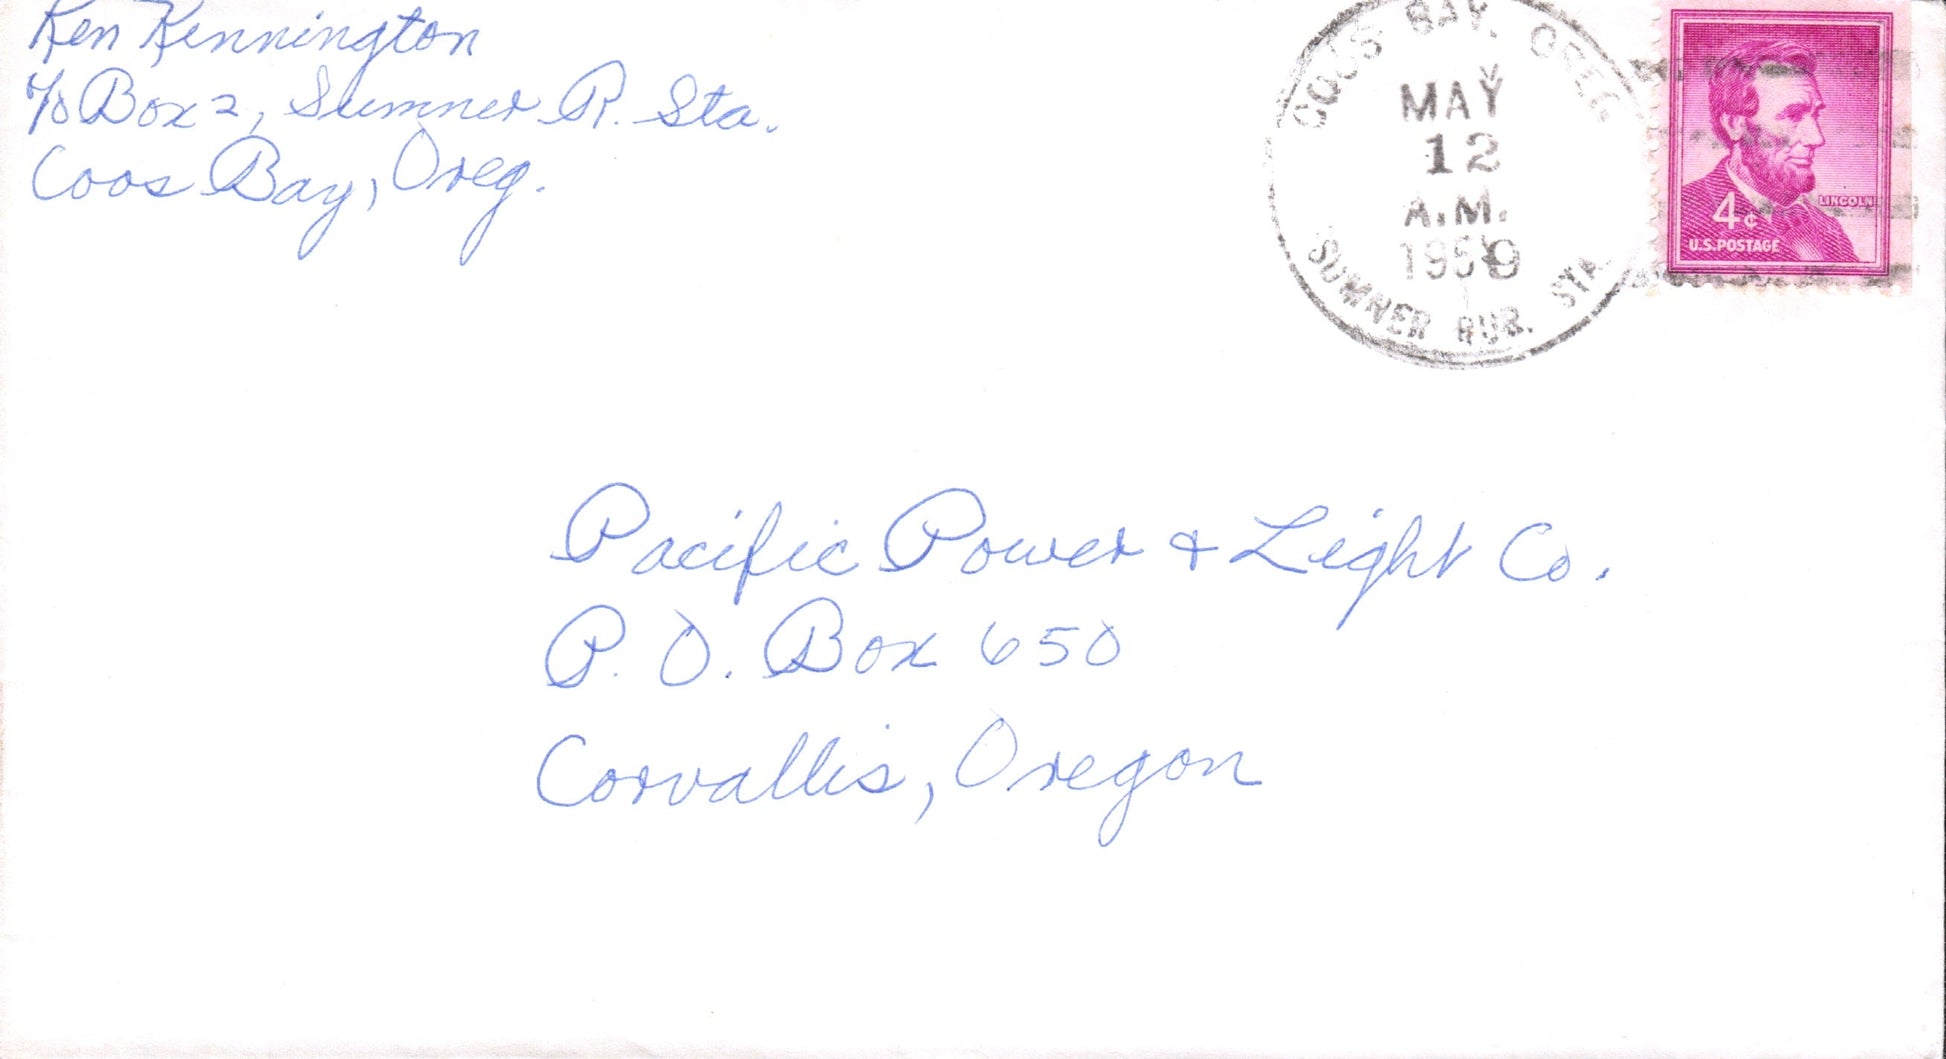 Ken Kennington
c/o Box 2, Sumner R. Sta.
Coos Bay, Oreg.
COOS BAY, OREG.
MAY
12
A.M.
1959
SUMNER RUR. STA.
LINCOLN
4¢
U.S.POSTAGE
Pacific Power & Light Co.
P. O. Box 650
Corvallis, Oregon